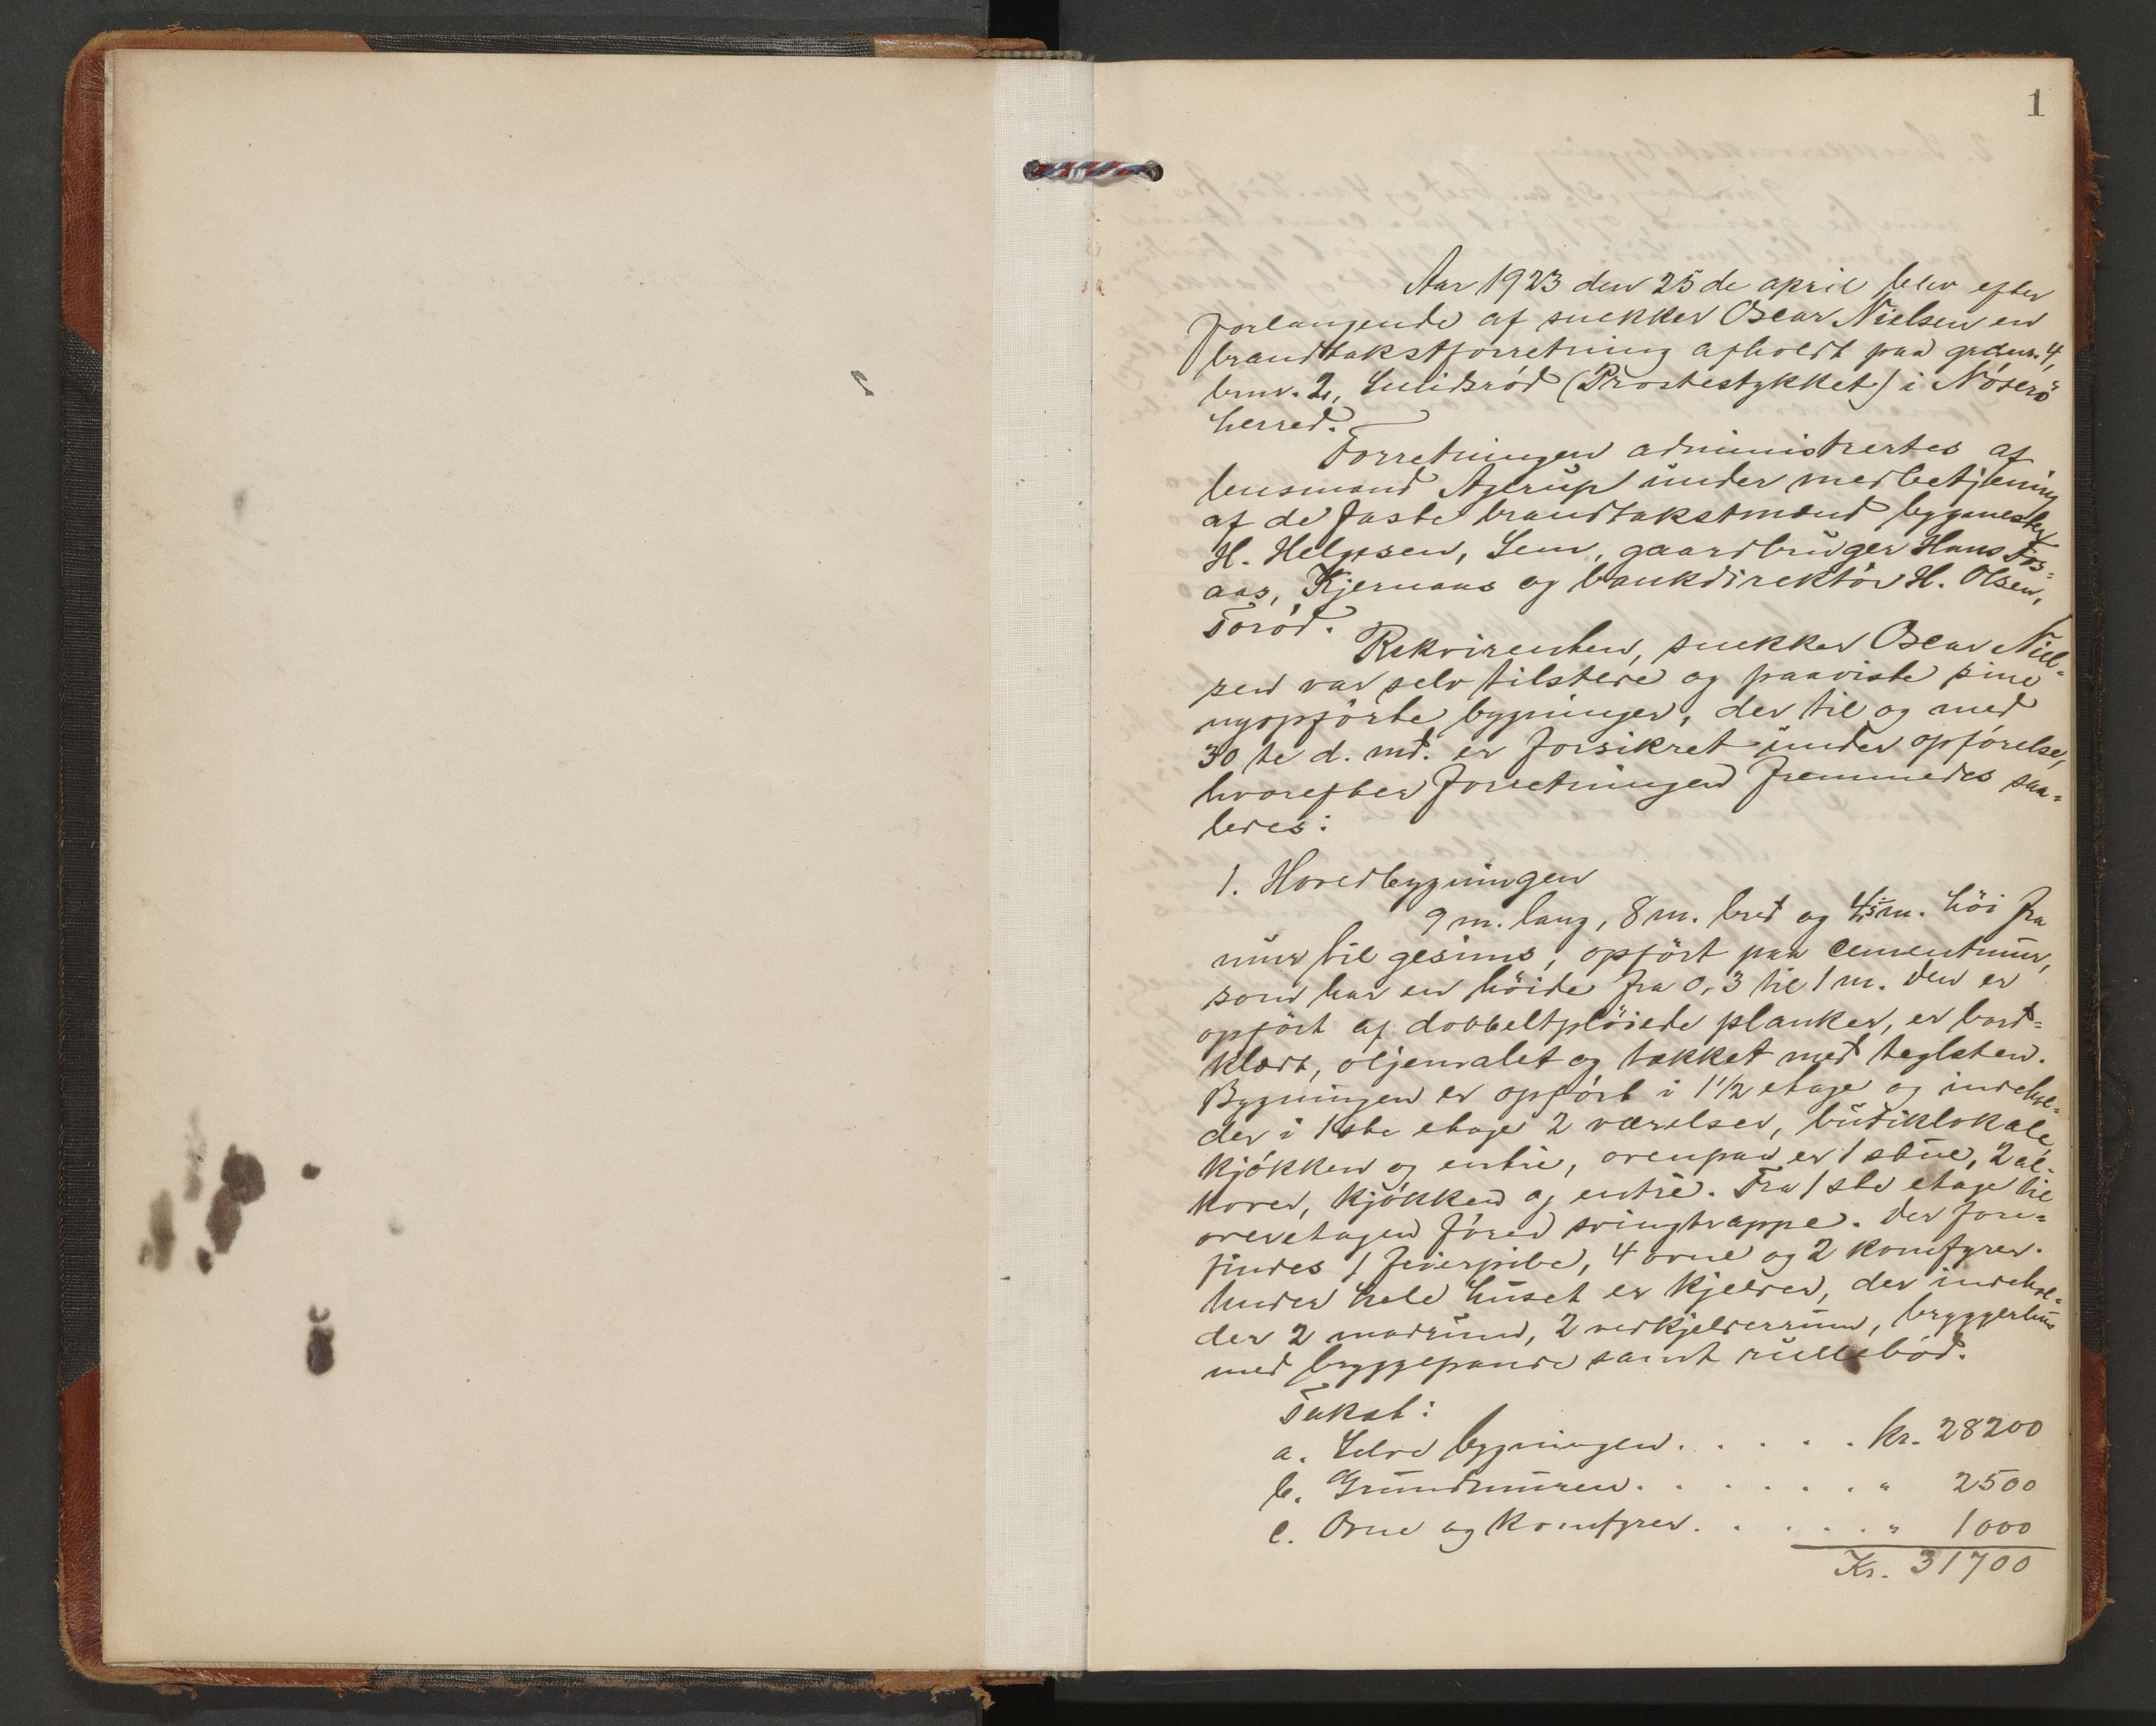 1
Aar 1923 den 25de april blev efter
forlangende af snekker Oscar Nielsen en
brandtakstforretning afholdt paa grdnr. 4,
brnr. 2, Smidsrød (Prostestykket) i Nøterø
herred.
Forretningen administrertes af
lensmand Agerup under medbetjening
af de faste brandtakstmænd bygmester
H. Helgesen, Sem, gaardbruger Hans Fos=
aas, Kjernaas og bankdirektør H. Olsen,
Torød.
Rekvirenten, snekker Oscar Niel=
sen var selv tilstede og paaviste sine
nyopførte bygninger, der til og med
30te d. md. er forsikret under opførelse,
hvorefter forretningen fremmedes saa=
ledes:
1. Hovedbygningen
9 m. lang, 8 m. bred og 4,5 m. høi fra
mur til gesims, opført paa cementmur,
som har en høide fra 0,3 til 1 m. Den er
opført af dobbeltpløiede planker, er bord=
klædt, oljemalet og tækket med teglsten.
Bygningen er opført i 1 1/2 etage og indehol=
der i 1ste etage 2 værelser, butiklokale,
kjøkken og entré, ovenpaa er 1 stue, 2 al=
kover, kjøkken og entré. Fra 1ste etage til
overetagen fører svingtrappe. Der fore=
findes 1 feierpibe, 4 ovne og 2 komfyrer.
Under hele huset er kjelder, der indehol=
der 2 madrum, 2 vedkjelderrum, bryggerhus
med bryggepande samt rullebod.
Takst:
a. Selve bygningen. . . . . . kr. 28200
b. Grundmuren. . . . . . . " 2500
c. Ovne og komfyrer. . . . . . " 1000
Kr. 31700